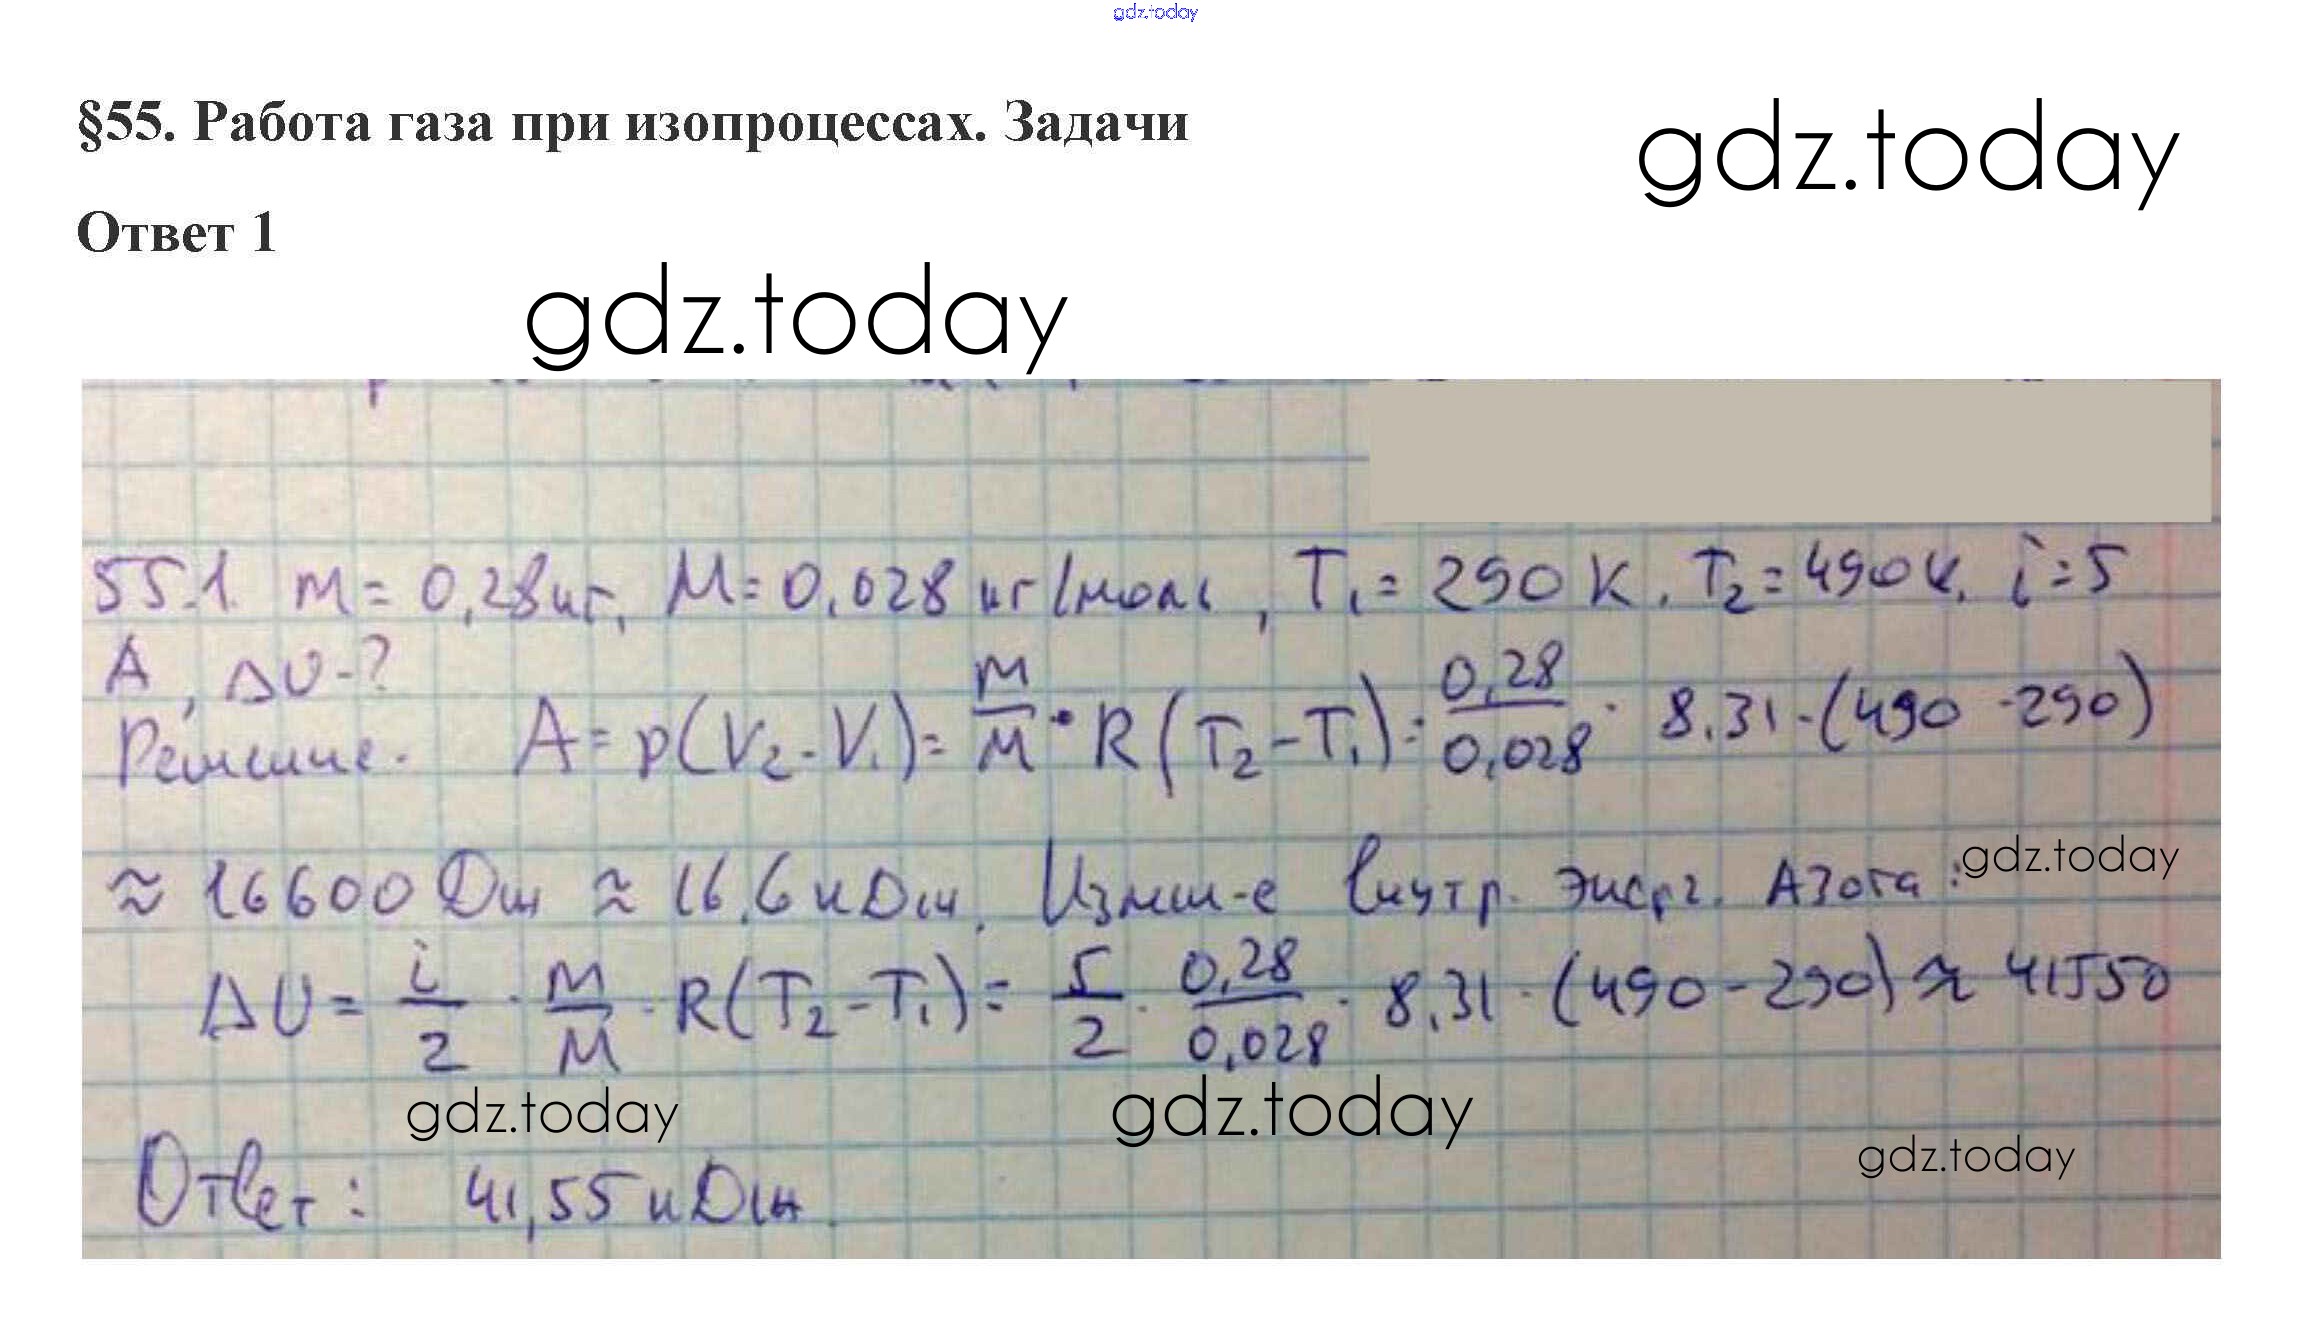 gdz.today
§55. Работа газа при изопроцессах. Задачи
gdz.today
Ответ 1
gdz.today
55.1. m = 0,28 кг, M = 0,028 кг/моль, T₁ = 290 K, T₂ = 490 K, i = 5
A, ΔU - ?
Решение. A = p(V₂ - V₁) = m/M · R(T₂ - T₁) = 0,28/0,028 · 8,31 · (490 - 290)
≈ 16600 Дж ≈ 16,6 кДж. Измен-е внутр. энерг. Азота:
gdz.today
ΔU = i/2 · m/M · R(T₂ - T₁) = 5/2 · 0,28/0,028 · 8,31 · (490 - 290) ≈ 41550
gdz.today
gdz.today
gdz.today
Ответ: 41,55 кДж.